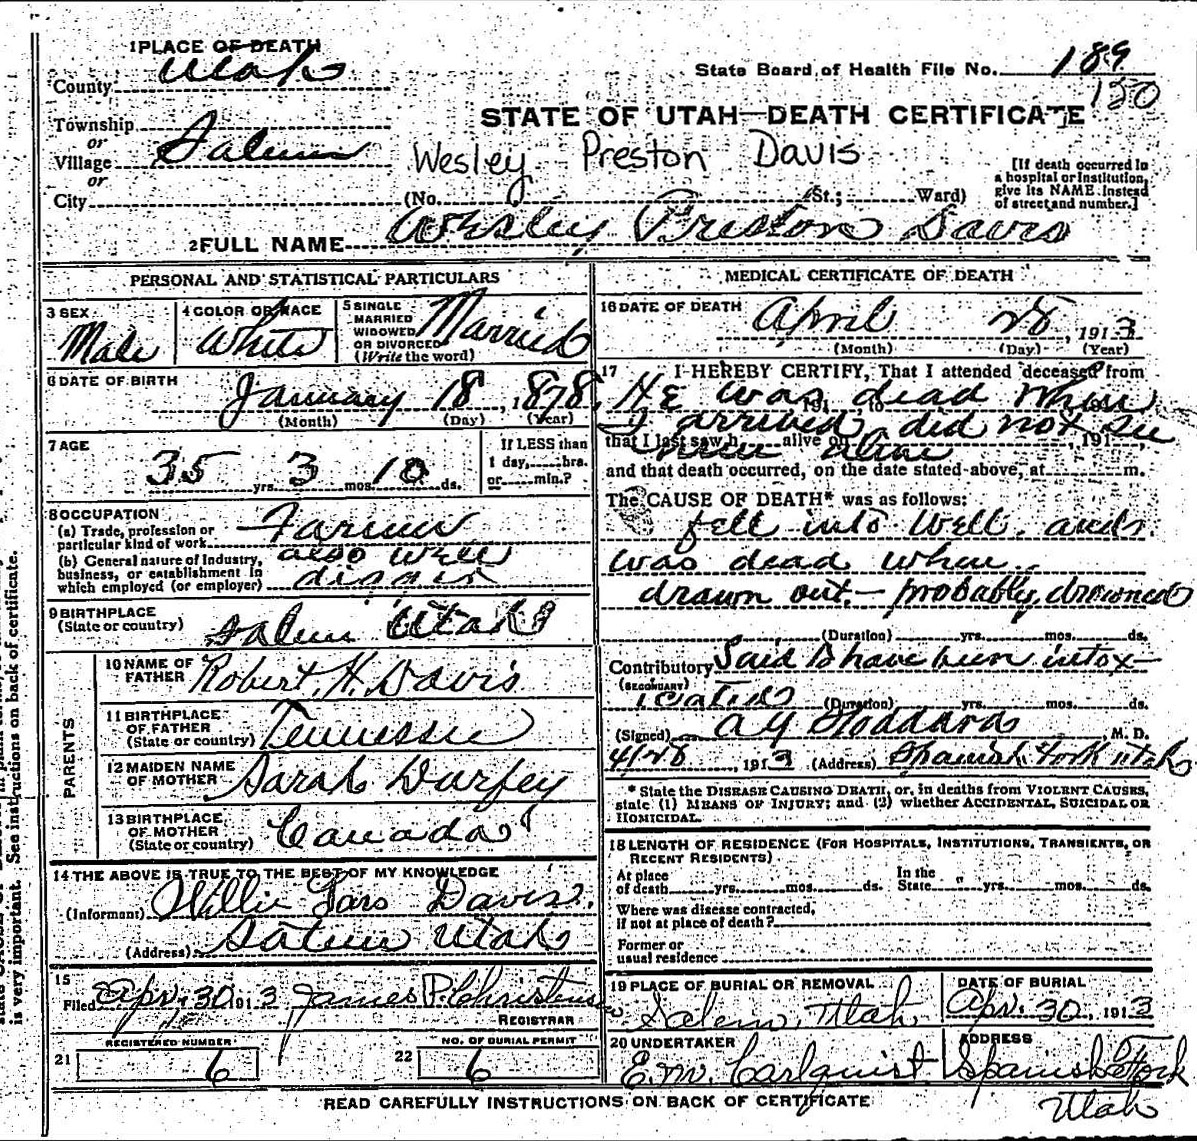 1 PLACE OF DEATH
County Utah
State Board of Health File No. 189
150
STATE OF UTAH—DEATH CERTIFICATE
Township
or
Village Salem
or
City
Wesley Preston Davis
(No. St.; Ward)
[If death occurred in
a hospital or institution,
give its NAME instead
of street and number.]
2 FULL NAME Wesley Preston Davis
PERSONAL AND STATISTICAL PARTICULARS
3 SEX
Male
4 COLOR OR RACE
White
5 SINGLE
MARRIED
WIDOWED
OR DIVORCED
(Write the word)
Married
6 DATE OF BIRTH
January 18, 1878
(Month) (Day) (Year)
7 AGE
35 yrs. 3 mos. 10 ds.
If LESS than
1 day, hrs.
or min.?
8 OCCUPATION
(a) Trade, profession or
particular kind of work Farmer
(b) General nature of Industry,
business, or establishment in
which employed (or employer)
also well
digger
9 BIRTHPLACE
(State or country) Salem Utah
PARENTS
10 NAME OF
FATHER Robert H. Davis
11 BIRTHPLACE
OF FATHER
(State or country) Tennessee
12 MAIDEN NAME
OF MOTHER Sarah Durfey
13 BIRTHPLACE
OF MOTHER
(State or country) Canada
14 THE ABOVE IS TRUE TO THE BEST OF MY KNOWLEDGE
(Informant) Willie Davis.
(Address) Salem Utah
15
Filed Apr. 30 1913 James P. Christensen
REGISTRAR
REGISTERED NUMBER
21 6
NO. OF BURIAL PERMIT
22 6
MEDICAL CERTIFICATE OF DEATH
16 DATE OF DEATH April 28, 1913
(Month) (Day) (Year)
17 I HEREBY CERTIFY, That I attended deceased from
191 , to
He was dead when
I arrived did not see
that I last saw h alive on , 191
him alive
and that death occurred, on the date stated above, at m.
The CAUSE OF DEATH* was as follows:
fell into well. and
was dead when
drawn out.— probably drowned
(Duration) yrs. mos. ds.
Contributory Said to have been intox-
(SECONDARY)
icated (Duration) yrs. mos. ds.
(Signed) Stoddard M. D.
4/28, 1913 (Address) Spanish Fork Utah
* State the DISEASE CAUSING DEATH, or, in deaths from VIOLENT CAUSES,
state (1) MEANS OF INJURY; and (2) whether ACCIDENTAL, SUICIDAL OR
HOMICIDAL.
18 LENGTH OF RESIDENCE (FOR HOSPITALS, INSTITUTIONS, TRANSIENTS, OR
RECENT RESIDENTS)
At place
of death yrs. mos. ds.
In the
State yrs. mos. ds.
Where was disease contracted,
if not at place of death?
Former or
usual residence
19 PLACE OF BURIAL OR REMOVAL
Salem, Utah,
DATE OF BURIAL
Apr. 30, 1913
20 UNDERTAKER
E. M. Carlquist
ADDRESS
Spanish Fork
Utah
READ CAREFULLY INSTRUCTIONS ON BACK OF CERTIFICATE
is very important. See instructions on back of certificate.